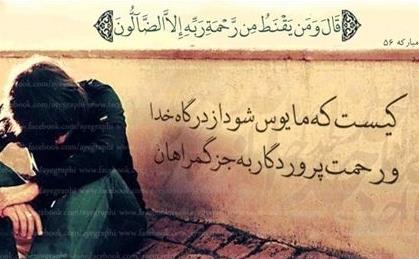 قَالَ وَمَن يَقْنَطُ مِن رَّحْمَةِ رَبِّهِ إِلاَّ الضَّآلُّونَ
مبارکه ۵۶
کیست که مایوس شود از درگاه خدا
و رحمت پروردگار به جز گمراهان
www.facebook.com/ayegraphi